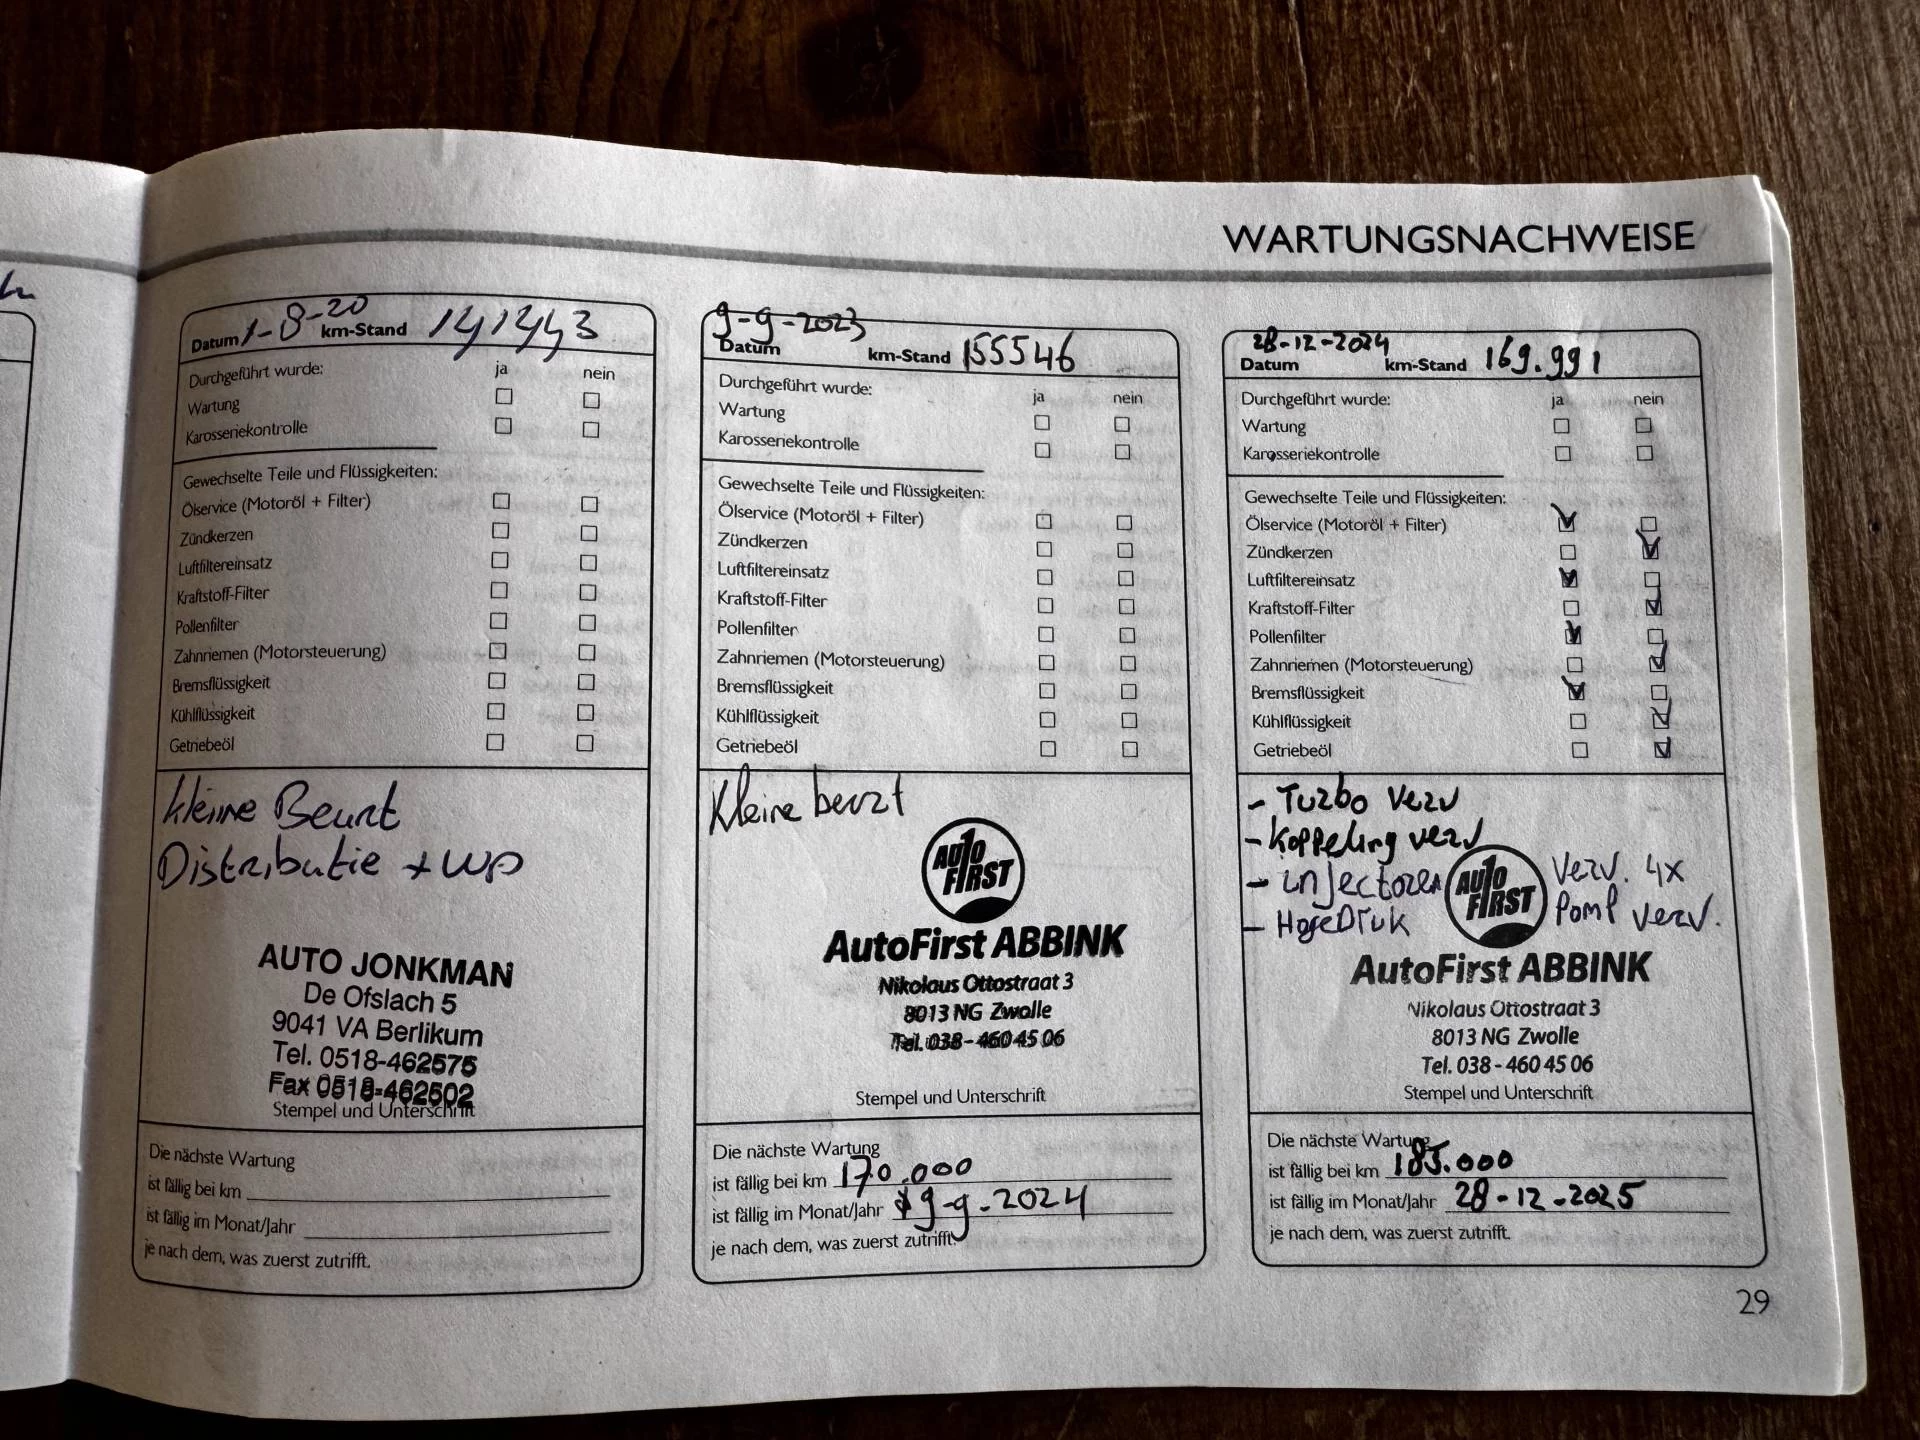 WARTUNGSNACHWEISE
Datum 1-8-20 km-Stand 141443
Durchgeführt wurde: ja nein
Wartung
Karosseriekontrolle
Gewechselte Teile und Flüssigkeiten:
Ölservice (Motoröl + Filter)
Zündkerzen
Luftfiltereinsatz
Kraftstoff-Filter
Pollenfilter
Zahnriemen (Motorsteuerung)
Bremsflüssigkeit
Kühlflüssigkeit
Getriebeöl
kleine Beurt
Distributie + wp
AUTO JONKMAN
De Ofslach 5
9041 VA Berlikum
Tel. 0518-462575
Fax 0518-462502
Stempel und Unterschrift
Die nächste Wartung
ist fällig bei km
ist fällig im Monat/Jahr
je nach dem, was zuerst zutrifft.
9-9-2023
Datum km-Stand 155546
Durchgeführt wurde: ja nein
Wartung
Karosseriekontrolle
Gewechselte Teile und Flüssigkeiten:
Ölservice (Motoröl + Filter)
Zündkerzen
Luftfiltereinsatz
Kraftstoff-Filter
Pollenfilter
Zahnriemen (Motorsteuerung)
Bremsflüssigkeit
Kühlflüssigkeit
Getriebeöl
Kleine beurt
AUTO
FIRST
AutoFirst ABBINK
Nikolaus Ottostraat 3
8013 NG Zwolle
Tel. 038 - 460 45 06
Stempel und Unterschrift
Die nächste Wartung
ist fällig bei km 170.000
ist fällig im Monat/Jahr 9-9-2024
je nach dem, was zuerst zutrifft.
28-12-2024
Datum km-Stand 169.991
Durchgeführt wurde: ja nein
Wartung
Karosseriekontrolle
Gewechselte Teile und Flüssigkeiten:
Ölservice (Motoröl + Filter)
Zündkerzen
Luftfiltereinsatz
Kraftstoff-Filter
Pollenfilter
Zahnriemen (Motorsteuerung)
Bremsflüssigkeit
Kühlflüssigkeit
Getriebeöl
- Turbo verv
- Koppeling verv
- injectoren verv. 4x
- HogeDruk Pomp verv.
AUTO
FIRST
AutoFirst ABBINK
Nikolaus Ottostraat 3
8013 NG Zwolle
Tel. 038 - 460 45 06
Stempel und Unterschrift
Die nächste Wartung
ist fällig bei km 185.000
ist fällig im Monat/Jahr 28-12-2025
je nach dem, was zuerst zutrifft.
29